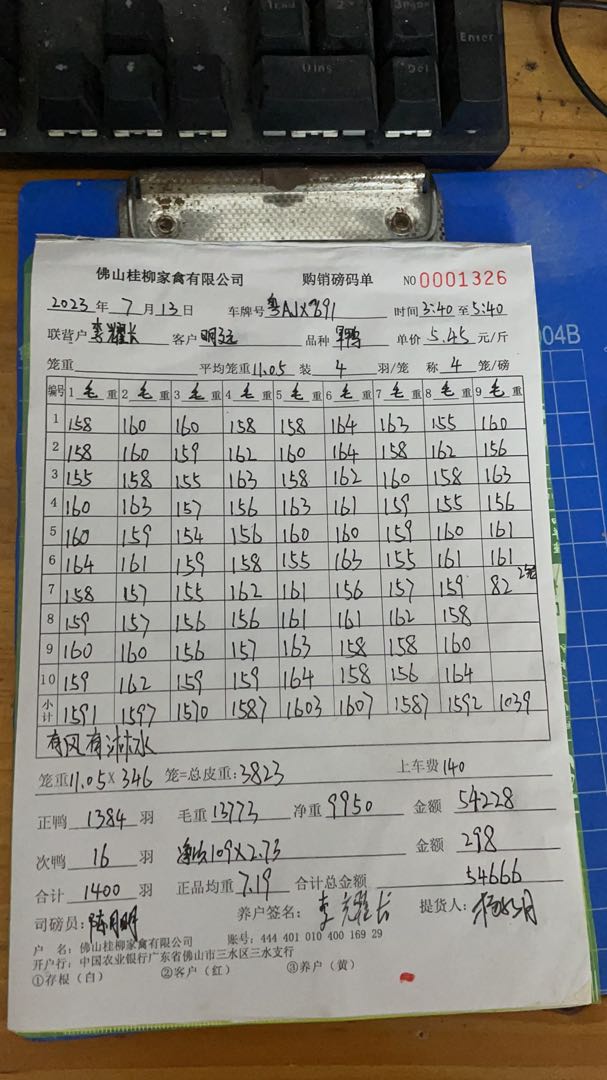 佛山桂柳家禽有限公司 购销磅码单 NO 0001326
2023 年 7 月 13 日 车牌号 时间 3:40 至 5:40
联营户 李耀长 客户 品种 单价 5.45 元/斤
笼重 平均笼重 11.05 装 4 羽/笼 称 4 笼/磅
编号 1 毛 重 2 毛 重 3 毛 重 4 毛 重 5 毛 重 6 毛 重 7 毛 重 8 毛 重 9 毛 重
1 158 160 160 158 158 164 163 155 160
2 158 160 159 162 160 164 158 162 156
3 155 158 155 163 158 162 160 158 163
4 160 163 157 156 163 161 159 155 156
5 160 159 154 156 160 160 159 160 161
6 164 161 159 158 155 163 155 161 161
7 158 157 155 162 161 156 157 159 82 2笼
8 159 157 156 156 161 161 162 158
9 160 160 156 157 163 158 158 160
10 159 162 159 159 164 158 156 164
小计 1591 1597 1570 1587 1603 1607 1587 1592 1039
有风有淋水
笼重 11.05 × 346 笼=总皮重: 3823 上车费 140
正鸭 1384 羽 毛重 13773 净重 9950 金额 54228
次鸭 16 羽 109×2.73 金额 298
合计 1400 羽 正品均重 7.19 合计总金额 54666
司磅员: 陈月明 养户签名: 李耀长 提货人:
户 名: 佛山桂柳家禽有限公司 账号: 444 401 010 400 169 29
开户行: 中国农业银行广东省佛山市三水区三水支行
①存根（白） ②客户（红） ③养户（黄）
004B
Enter
Ins
Del